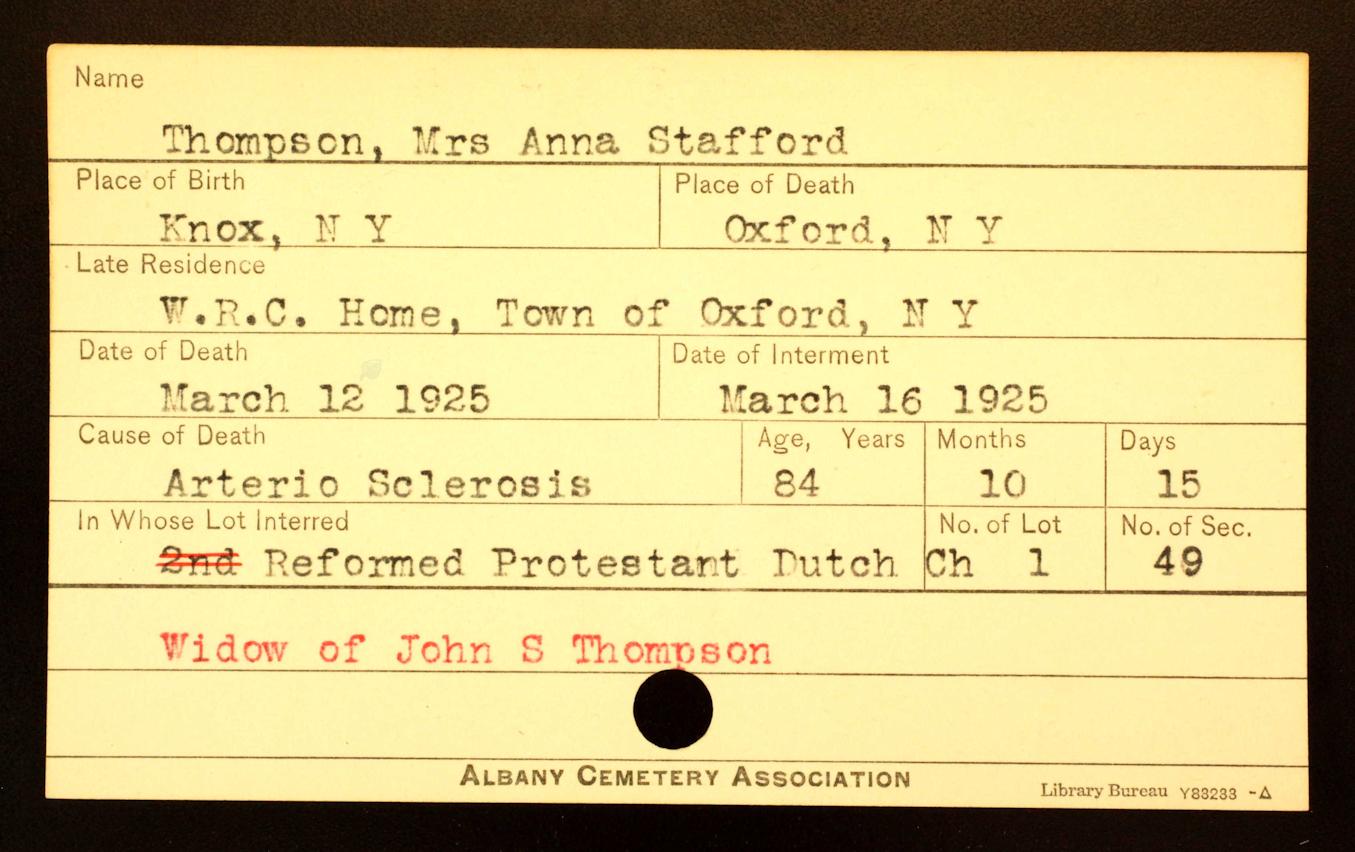 Name
Thompson, Mrs Anna Stafford
Place of Birth Place of Death
Knox, N Y Oxford, N Y
Late Residence
W.R.C. Home, Town of Oxford, N Y
Date of Death Date of Interment
March 12 1925 March 16 1925
Cause of Death Age, Years Months Days
Arterio Sclerosis 84 10 15
In Whose Lot Interred No. of Lot No. of Sec.
2nd Reformed Protestant Dutch Ch 1 49
Widow of John S Thompson
ALBANY CEMETERY ASSOCIATION
Library Bureau Y83233 -Δ